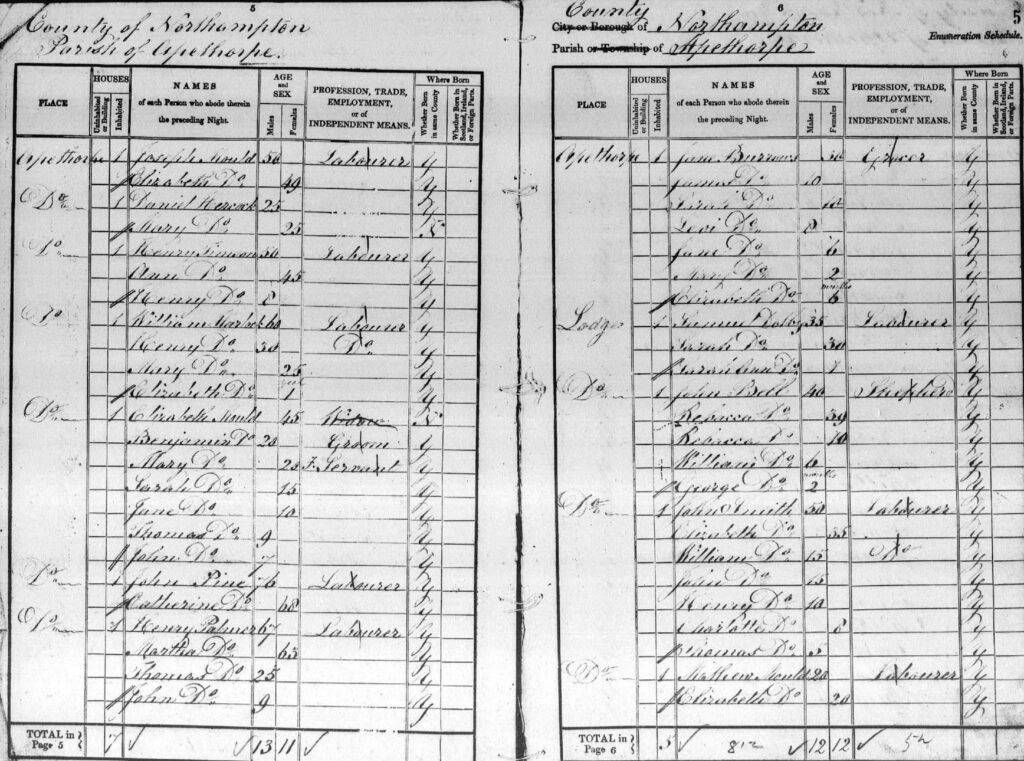 5
County of Northampton
Parish of Apethorpe
PLACE
HOUSES
Uninhabited or Building
Inhabited
NAMES
of each Person who abode therein
the preceding Night.
AGE
and
SEX
Males
Females
PROFESSION, TRADE,
EMPLOYMENT,
or of
INDEPENDENT MEANS.
Where Born
Whether Born in same County
Whether Born in Scotland, Ireland, or Foreign Parts.
Apethorpe 1 Joseph Mould 50 Labourer y
Elizabeth Do 49 y
Do 1 Daniel Hercock 25 y
Mary Do 25 N
Do 1 Henry 50 Labourer y
Ann Do 45 y
Henry Do 8 y
Do 1 William 60 Labourer y
Henry Do 30 Do y
Mary Do 25 y
Elizabeth Do 1 y
Do 1 Elizabeth Mould 45 Widow N
Benjamin Do 20 Groom y
Mary Do 25 F. Servant y
Sarah Do 15 y
Jane Do 10 y
Thomas Do 9 y
John Do 7 y
Do 1 John Pine 76 Labourer y
Catherine Do 68 y
Do 1 Henry Palmer 67 Labourer y
Martha Do 65 y
Thomas Do 25 y
John Do 9 y
TOTAL in
Page 5
7 13 11
6
5
County
City or Borough of Northampton
Parish or Township of Apethorpe
Enumeration Schedule.
PLACE
HOUSES
Uninhabited or Building
Inhabited
NAMES
of each Person who abode therein
the preceding Night.
AGE
and
SEX
Males
Females
PROFESSION, TRADE,
EMPLOYMENT,
or of
INDEPENDENT MEANS.
Where Born
Whether Born in same County
Whether Born in Scotland, Ireland, or Foreign Parts.
Apethorpe 1 Jane Burrows 30 Grocer y
James Do 10 y
Sarah Do y
Levi Do 8 y
Jane Do 6 y
Mary Do 2 y
months
Elizabeth Do 6 y
Lodge 1 Samuel Dolby 35 Labourer y
Sarah Do 30 y
Sarah Ann Do 7 y
Do 1 John Bell 40 Shepherd y
Rebecca Do 39 y
Rebecca Do 10 y
William Do 6 y
months
George Do 2 y
Do 1 John Smith 50 Labourer y
Elizabeth Do 35 y
William Do 15 Do y
John Do 15 y
Henry Do 10 y
Charlotte Do 8 y
Thomas Do 5 y
Do 1 Mathew Mould 20 Labourer y
Elizabeth Do 20 y
TOTAL in
Page 6
5 12 12